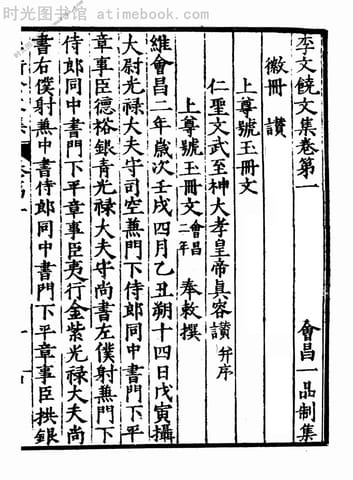 时光图书馆 atimebook.com
李文饒文集卷第一 會昌一品制集
徽冊 讚
上尊號玉冊文
仁聖文武至神大孝皇帝真容讚并序
上尊號玉冊文會昌二年 奉敕撰
維會昌二年歲次壬戌四月乙丑朔十四日戊寅攝
大尉光禄大夫守司空兼門下侍郎同中書門下平
章事臣德裕銀青光禄大夫守尚書左僕射兼門下
侍郎同中書門下平章事臣夷行金紫光禄大夫尚
書右僕射兼中書侍郎同中書門下平章事臣拱銀